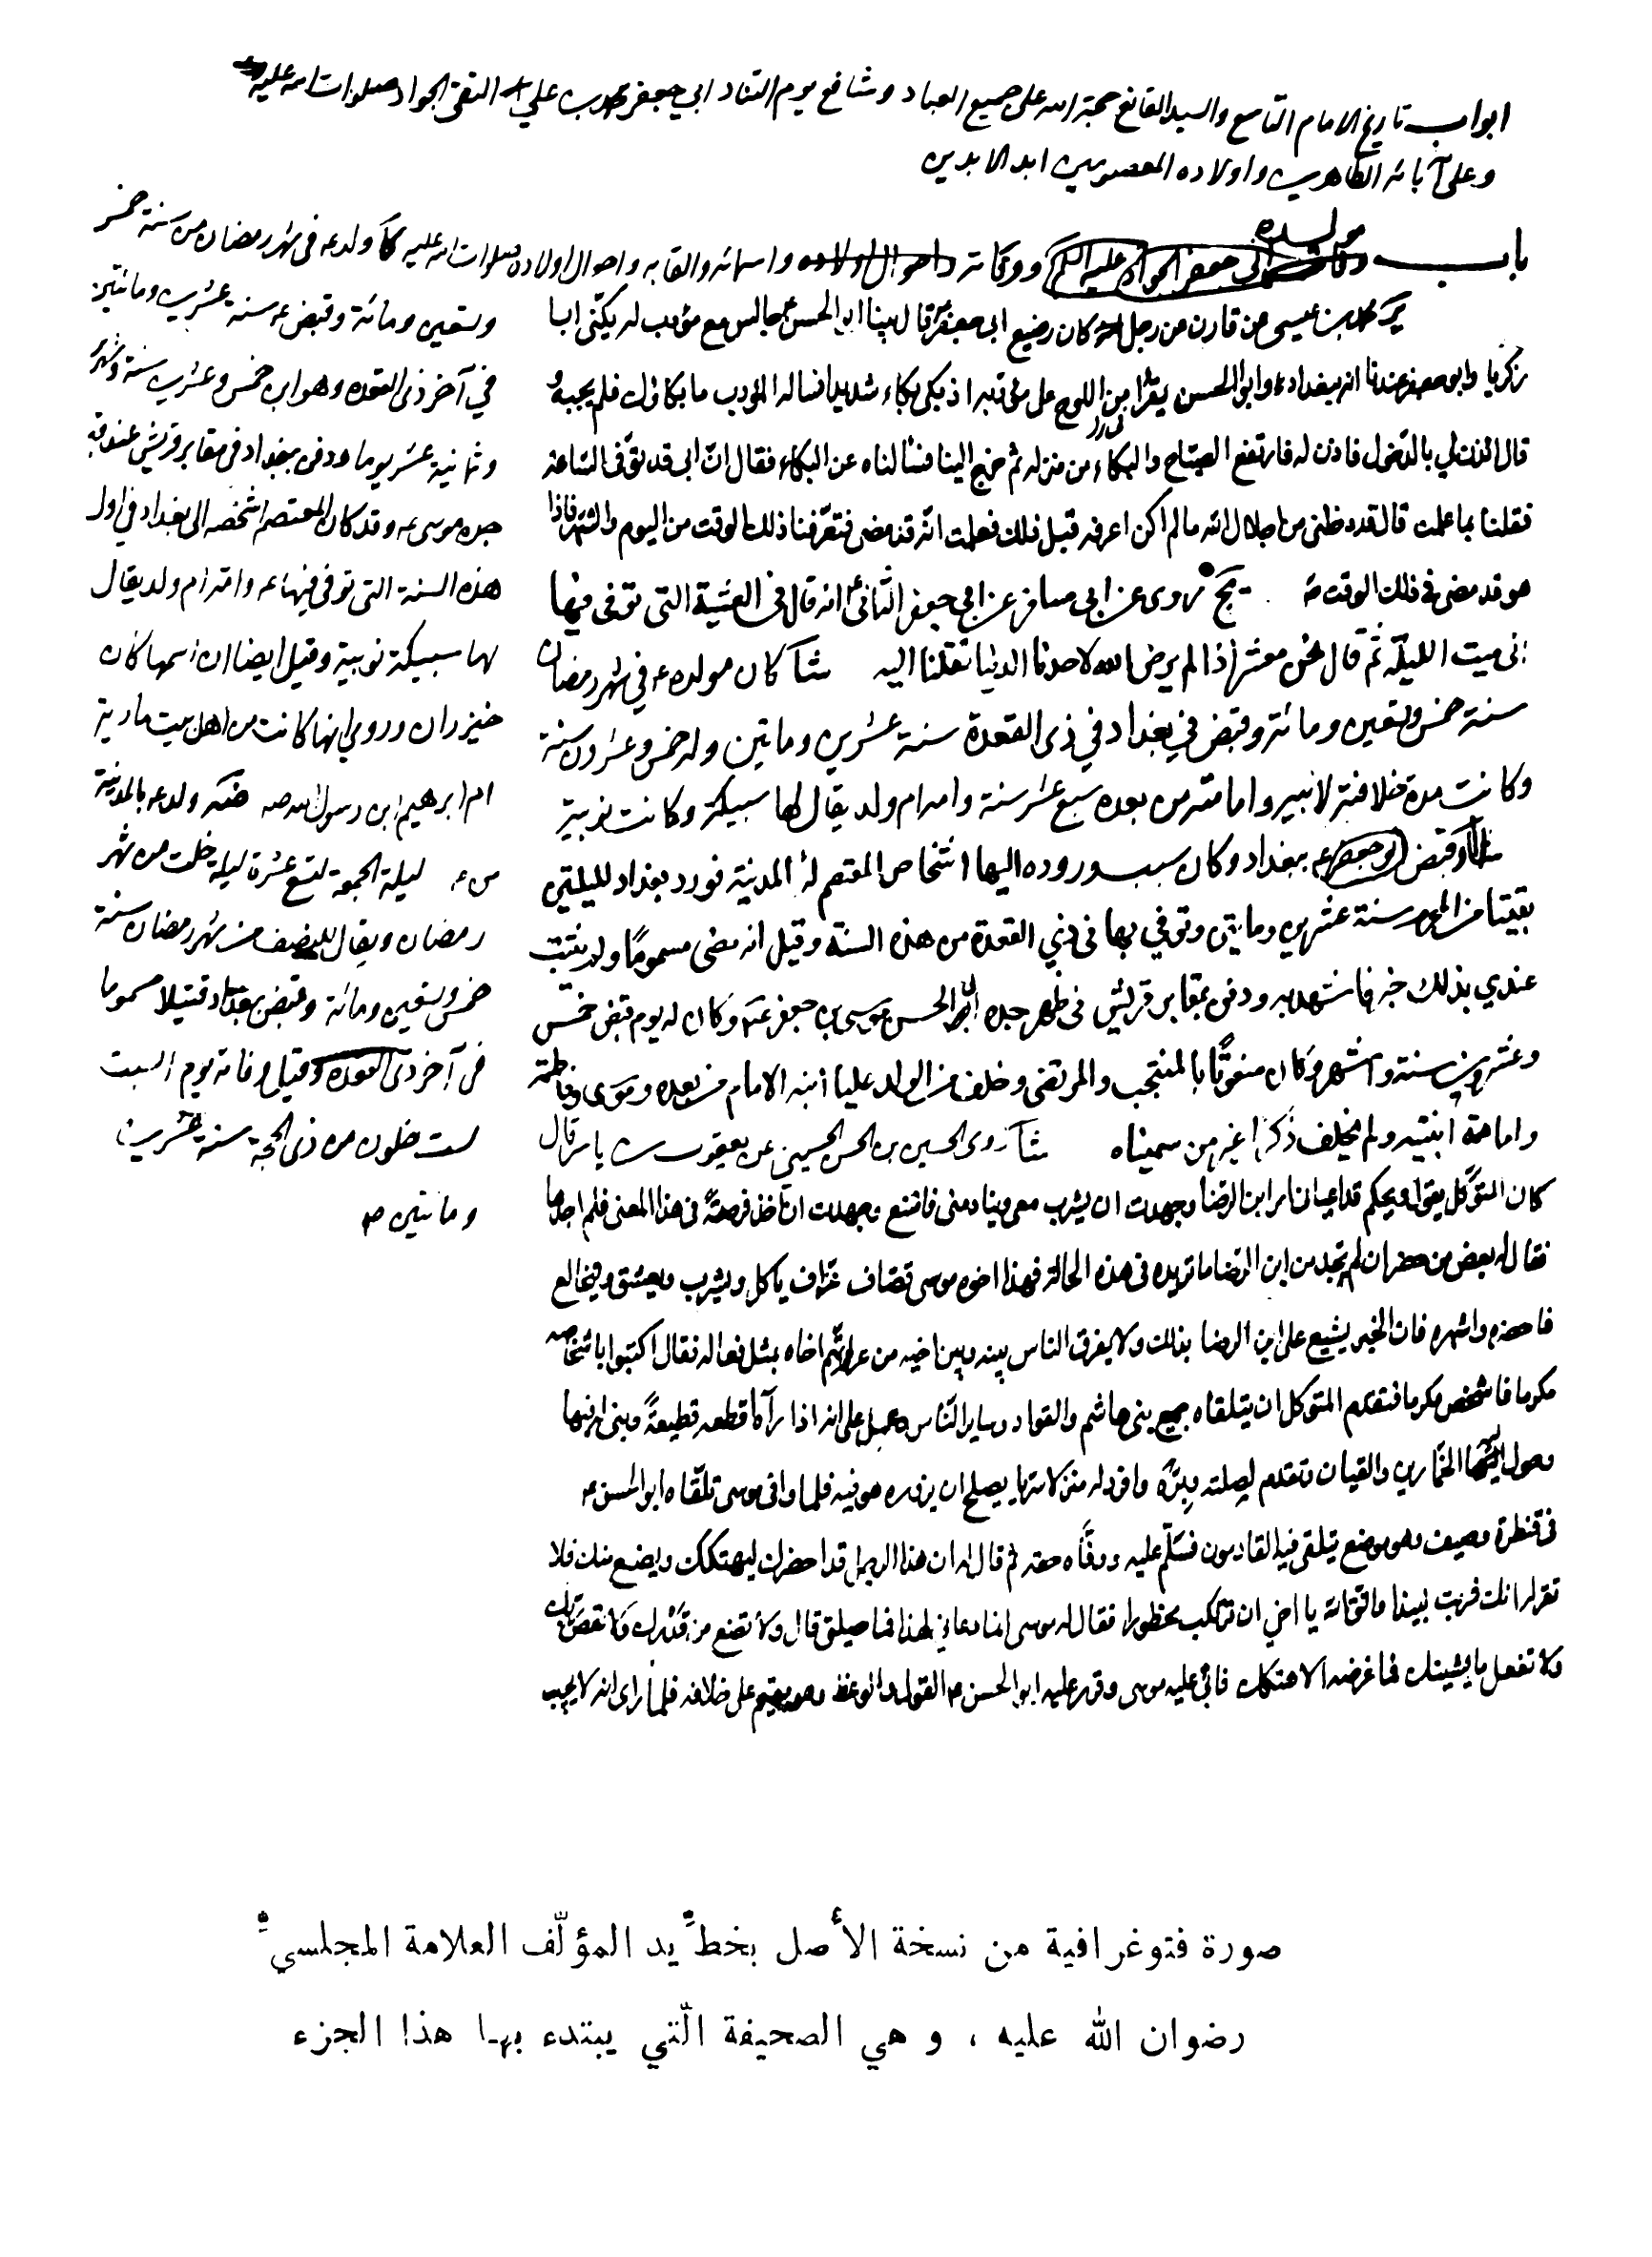 ابواب تاريخ الامام التاسع والسيد القانع حجة الله على جميع العباد وشافع يوم التناد ابي جعفر محمد بن علي التقي الجواد صلوات الله عليه
وعلى آبائه الطاهرين واولاده المعصومين ابد الابدين
باب مولده ووفاته واسمائه والقابه واحوال اولاده صلوات الله عليه كا ولد ع في شهر رمضان من سنة خمس
وتسعين ومائة وقبض ع سنة عشرين ومائتين
في آخر ذي القعدة وهو ابن خمس وعشرين سنة وشهرين
وثمانية عشر يوما ودفن ببغداد في مقابر قريش عند قبر
جده موسى ع وقد كان المعتصم اشخصه الى بغداد في اول
هذه السنة التي توفي فيها ع وامه ام ولد يقال
لها سبيكة نوبية وقيل ايضا ان اسمها كان
خيزران وروي انها كانت من اهل بيت مارية
ام ابرهيم ابن رسول الله ص ضه ولد ع بالمدينة
ليلة الجمعة لتسع عشرة ليلة خلت من شهر
رمضان ويقال للنصف من شهر رمضان سنة
خمس وتسعين ومائة وقبض ببغداد قتيلا مسموما
في آخر ذي القعدة وقيل وفاته يوم السبت
لست خلون من ذي الحجة سنة عشرين
ومائتين
ير محمد بن عيسى عن قارن عن رجل كان رضيع ابي جعفر ع قال بينا ابو الحسن ع جالس مع مؤدب له يكنى ابا
زكريا وابو جعفر عندنا انه ببغداد وابو الحسن يقرأ من اللوح على مؤدبه اذ بكى بكاء شديدا فسأله المؤدب ما بكاؤك فلم يجبه
قال ائذن لي بالدخول فاذن له فارتفع الصياح والبكاء من منزله ثم خرج الينا فسألناه عن البكاء فقال ان ابي قد توفي الساعة
فقلنا بما علمت قال قد دخلني من اجلال الله ما لم اكن اعرفه قبل ذلك فعلمت انه قد مضى فتعرفنا ذلك الوقت من اليوم والشهر فاذا
هو قد مضى في ذلك الوقت يج روى عن ابي مسافر عن ابي جعفر الثاني ع انه قال في العشية التي توفي فيها
اني ميت الليلة ثم قال نحن معشر اذا لم يرض الله لاحدنا الدنيا نقلنا اليه شا كان مولده ع في شهر رمضان
سنة خمس وتسعين ومائة وقبض في بغداد في ذي القعدة سنة عشرين ومايتين وله خمس وعشرون سنة
وكانت مدة خلافته لابيه وامامته من بعده سبع عشر سنة وامه ام ولد يقال لها سبيكة وكانت نوبية
شا وقبض ابو جعفر ع ببغداد وكان سبب وروده اليها اشخاص المعتصم له المدينة فورد بغداد لليلتين
بقيتا من المحرم سنة عشرين ومايتين وتوفي بها في ذي القعدة من هذه السنة وقيل انه مضى مسموما ولم يثبت
عندي بذلك خبر فاشهد به ودفن بمقابر قريش في ظهر جده ابي الحسن موسى بن جعفر ع وكان له يوم قبض خمس
وعشرون سنة واشهر وكان منعوتا بالمنتجب والمرتضى وخلف من الولد عليا ابنه الامام من بعده وموسى وفاطمة
وامامة ابنتيه ولم يخلف ذكرا غير من سميناه شا روى الحسين بن الحسن الحسيني عن يعقوب بن ياسر قال
كان المتوكل يقول ويحكم قد اعياني امر ابن الرضا وجهدت ان يشرب معي وينادمني فامتنع وجهدت ان آخذ فرصة في هذا المعنى فلم اجدها
فقال له بعض من حضر ان لم تجد من ابن الرضا ما تريده في هذه الحالة فهذا اخوه موسى قصاف عزاف ياكل ويشرب ويعشق ويتخالع
فاحضره واشهره فان الخبر يشيع على ابن الرضا بذلك ولا يفرق الناس بينه وبين اخيه من عرفه اتهم اخاه بمثل فعاله فقال اكتبوا باشخاصه
مكرما فاشخص مكرما فتقدم المتوكل ان يتلقاه جميع بني هاشم والقواد وساير الناس وعمل على انه اذا رآه اقطعه قطيعة وبنى له فيها
وحول اليها الخمارين والقيان وتقدم لصلته وبره وافرد له منزلا سريا يصلح ان يزوره هو فيه فلما وافى موسى تلقاه ابو الحسن ع
في قنطرة وصيف وهو موضع يتلقى فيه القادمون فسلم عليه ووفاه حقه ثم قال له ان هذا الرجل قد احضرك ليهتكك ويضع منك فلا
تقر له انك شربت نبيذا واتق الله يا اخي ان ترتكب محظورا فقال له موسى انما دعاني لهذا فما حيلتي قال ولا تضع من قدرك ولا تعص ربك
ولا تفعل ما يشينك فما غرضه الا هتكك فابى عليه موسى وكرر عليه ابو الحسن ع القول والوعظ وهو مقيم على خلافه فلما راى انه لا يجيب
صورة فتوغرافية من نسخة الأصل بخطِّ يد المؤلّف العلامة المجلسيِّ
رضوان الله عليه ، و هي الصحيفة الّتي يبتدء بها هذا الجزء